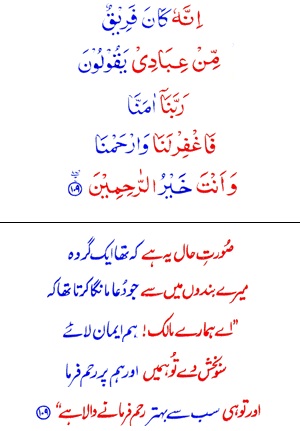 اِنَّهٗ كَانَ فَرِيْقٌ
مِّنْ عِبَادِيْ يَقُوْلُوْنَ
رَبَّنَآ اٰمَنَّا
فَاغْفِرْ لَنَا وَارْحَمْنَا
وَاَنْتَ خَيْرُ الرّٰحِمِيْنَ ۝۱۰۹
صُورتِ حال یہ ہے کہ تھا ایک گروہ
میرے بندوں میں سے جو دُعا مانگا کرتا تھا کہ
”اے ہمارے مالک! ہم ایمان لائے
سو بخش دے تُو ہمیں اور ہم پر رحم فرما
اور تو ہی سب سے بہتر رحم فرمانے والا ہے“ ۝۱۰۹